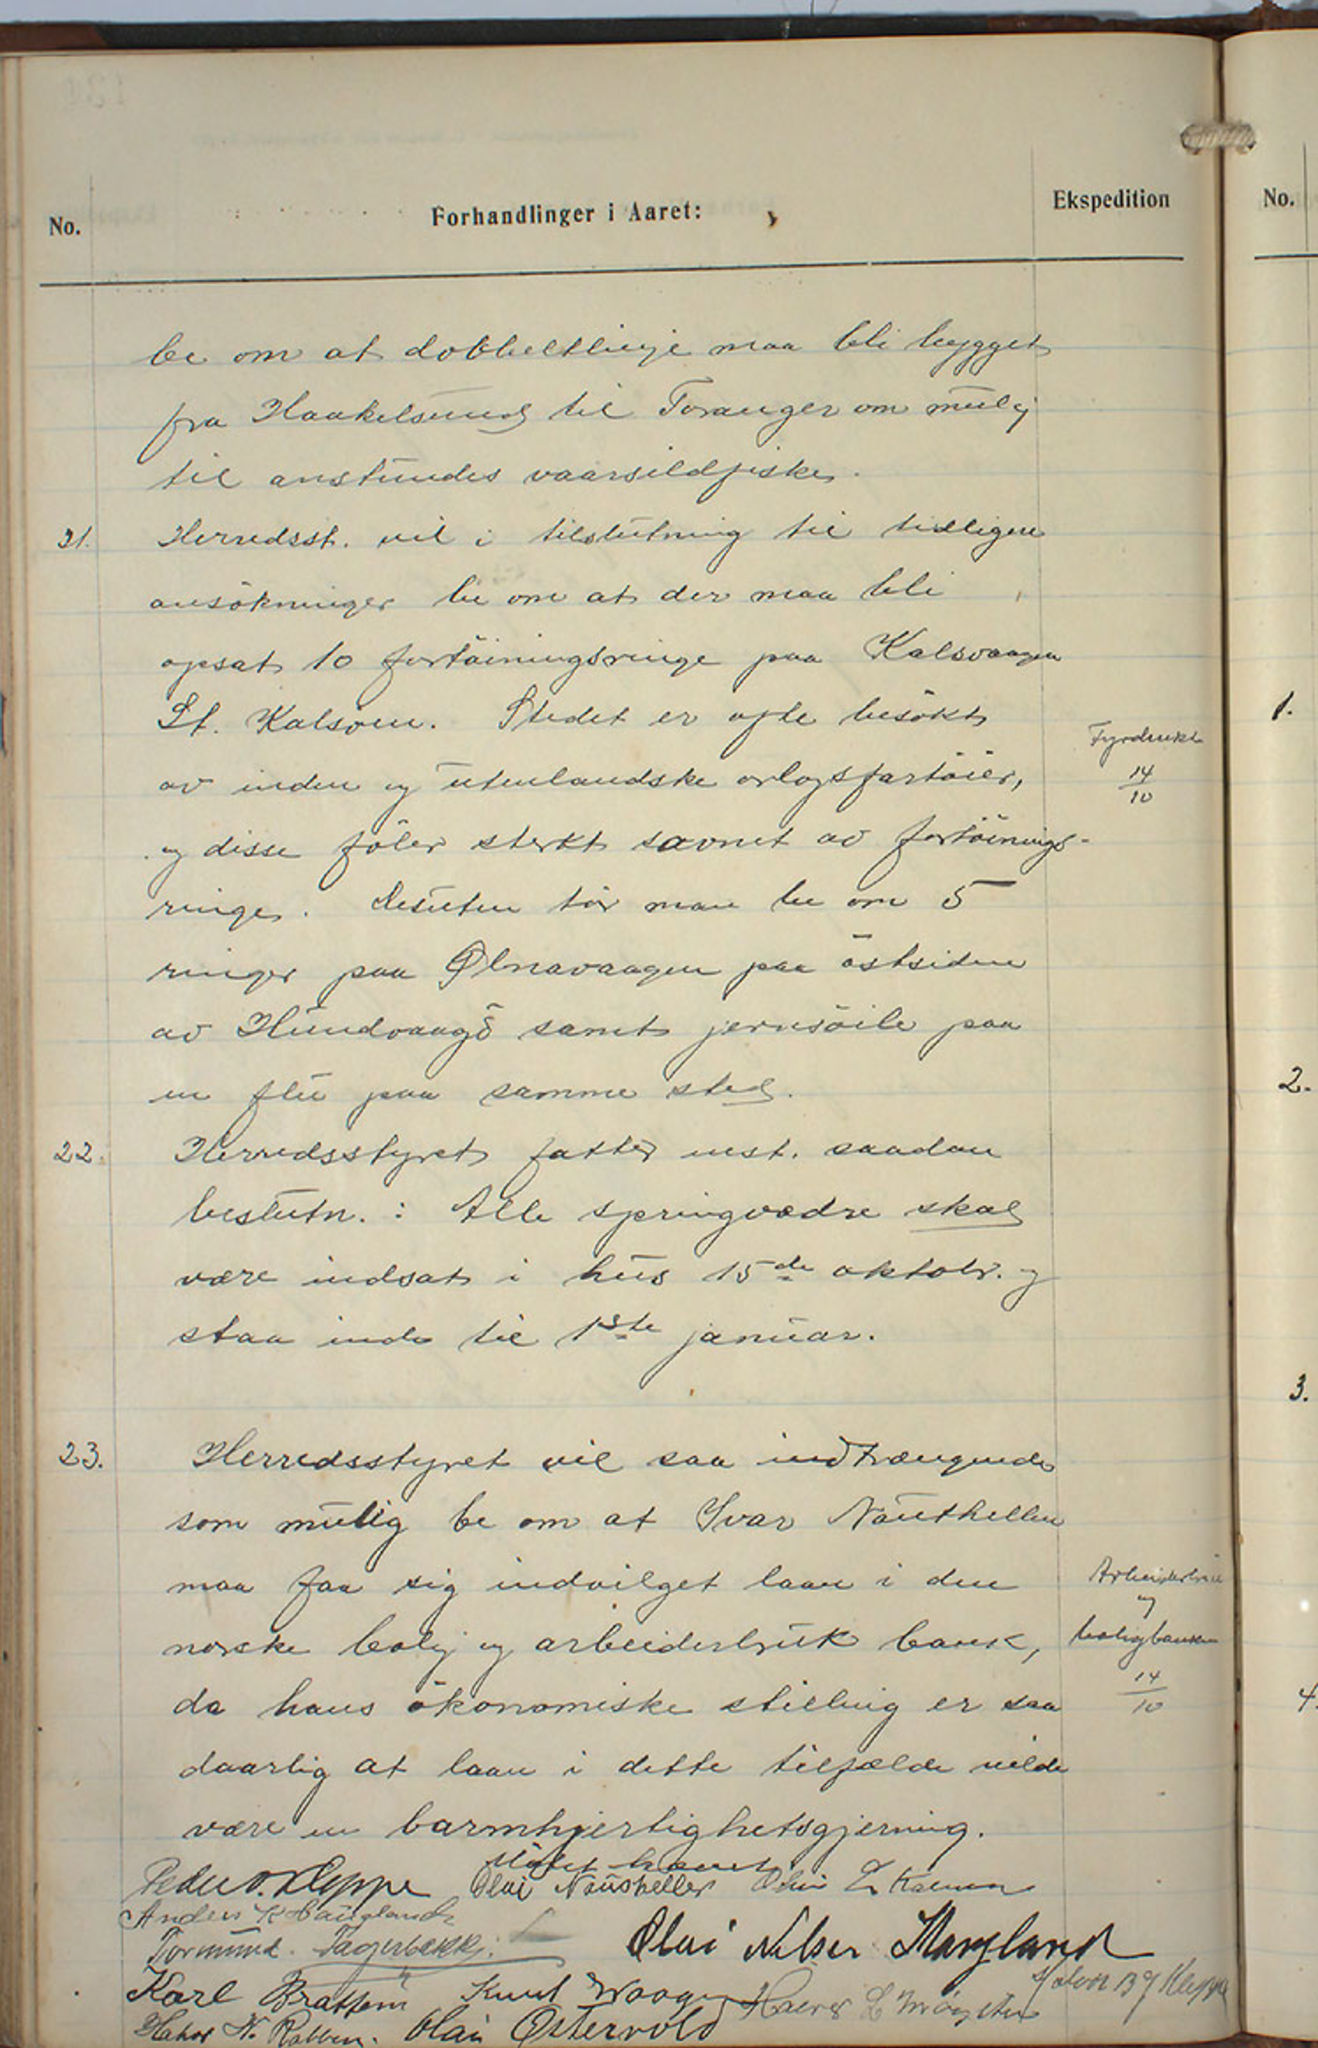 No.
Forhandlinger i Aaret:
Ekspedition
No.
be om at dobbeltlinje maa bli bygget
fra Haakelsund til Toranger om mulig
til anstundes vaarsildfiske.
21. Herredsst. vil i tilslutning til tidligere
ansökninger be om at der maa bli
opsat 10 fortöiningsringe paa Kalsvaagen
St. Kalsöen. Stedet er ofte besökt
av inden og utenlandske orlogsfartöier,
og disse föler sterkt savnet av fortöinings-
ringe. Desuten tör man be om 5
ringer paa Ølnavaagen paa östsiden
av Hundvaagö samt jernsöile paa
en flu paa samme sted.
Fyrdirekt.
14
10
22. Herredsstyret fatter enst. saadan
beslutn.: Alle springvædre skal
være indsat i hus 15de oktobr. og
staa inde til 1ste januar.
23. Herredsstyret vil saa indtrængende
som mulig be om at Ivar Nauthellen
maa faa sig indvilget laan i den
norske bolig og arbeiderbruk bank,
da hans ökonomiske stilling er saa
daarlig at laan i dette tilfælde vilde
være en barmhjertighetsgjerning.
Arbeiderbruk
og
boligbanken
14
10
Mötet hævet
Peder O. Kleppe Olai Naushellen
Anders K Haugland
Tormund Fagerbakke Olai Nilsen Møgland
Karl Brattem Knut Waagen Halvor L Møgster
Olai Østervold
1.
2.
3.
4.